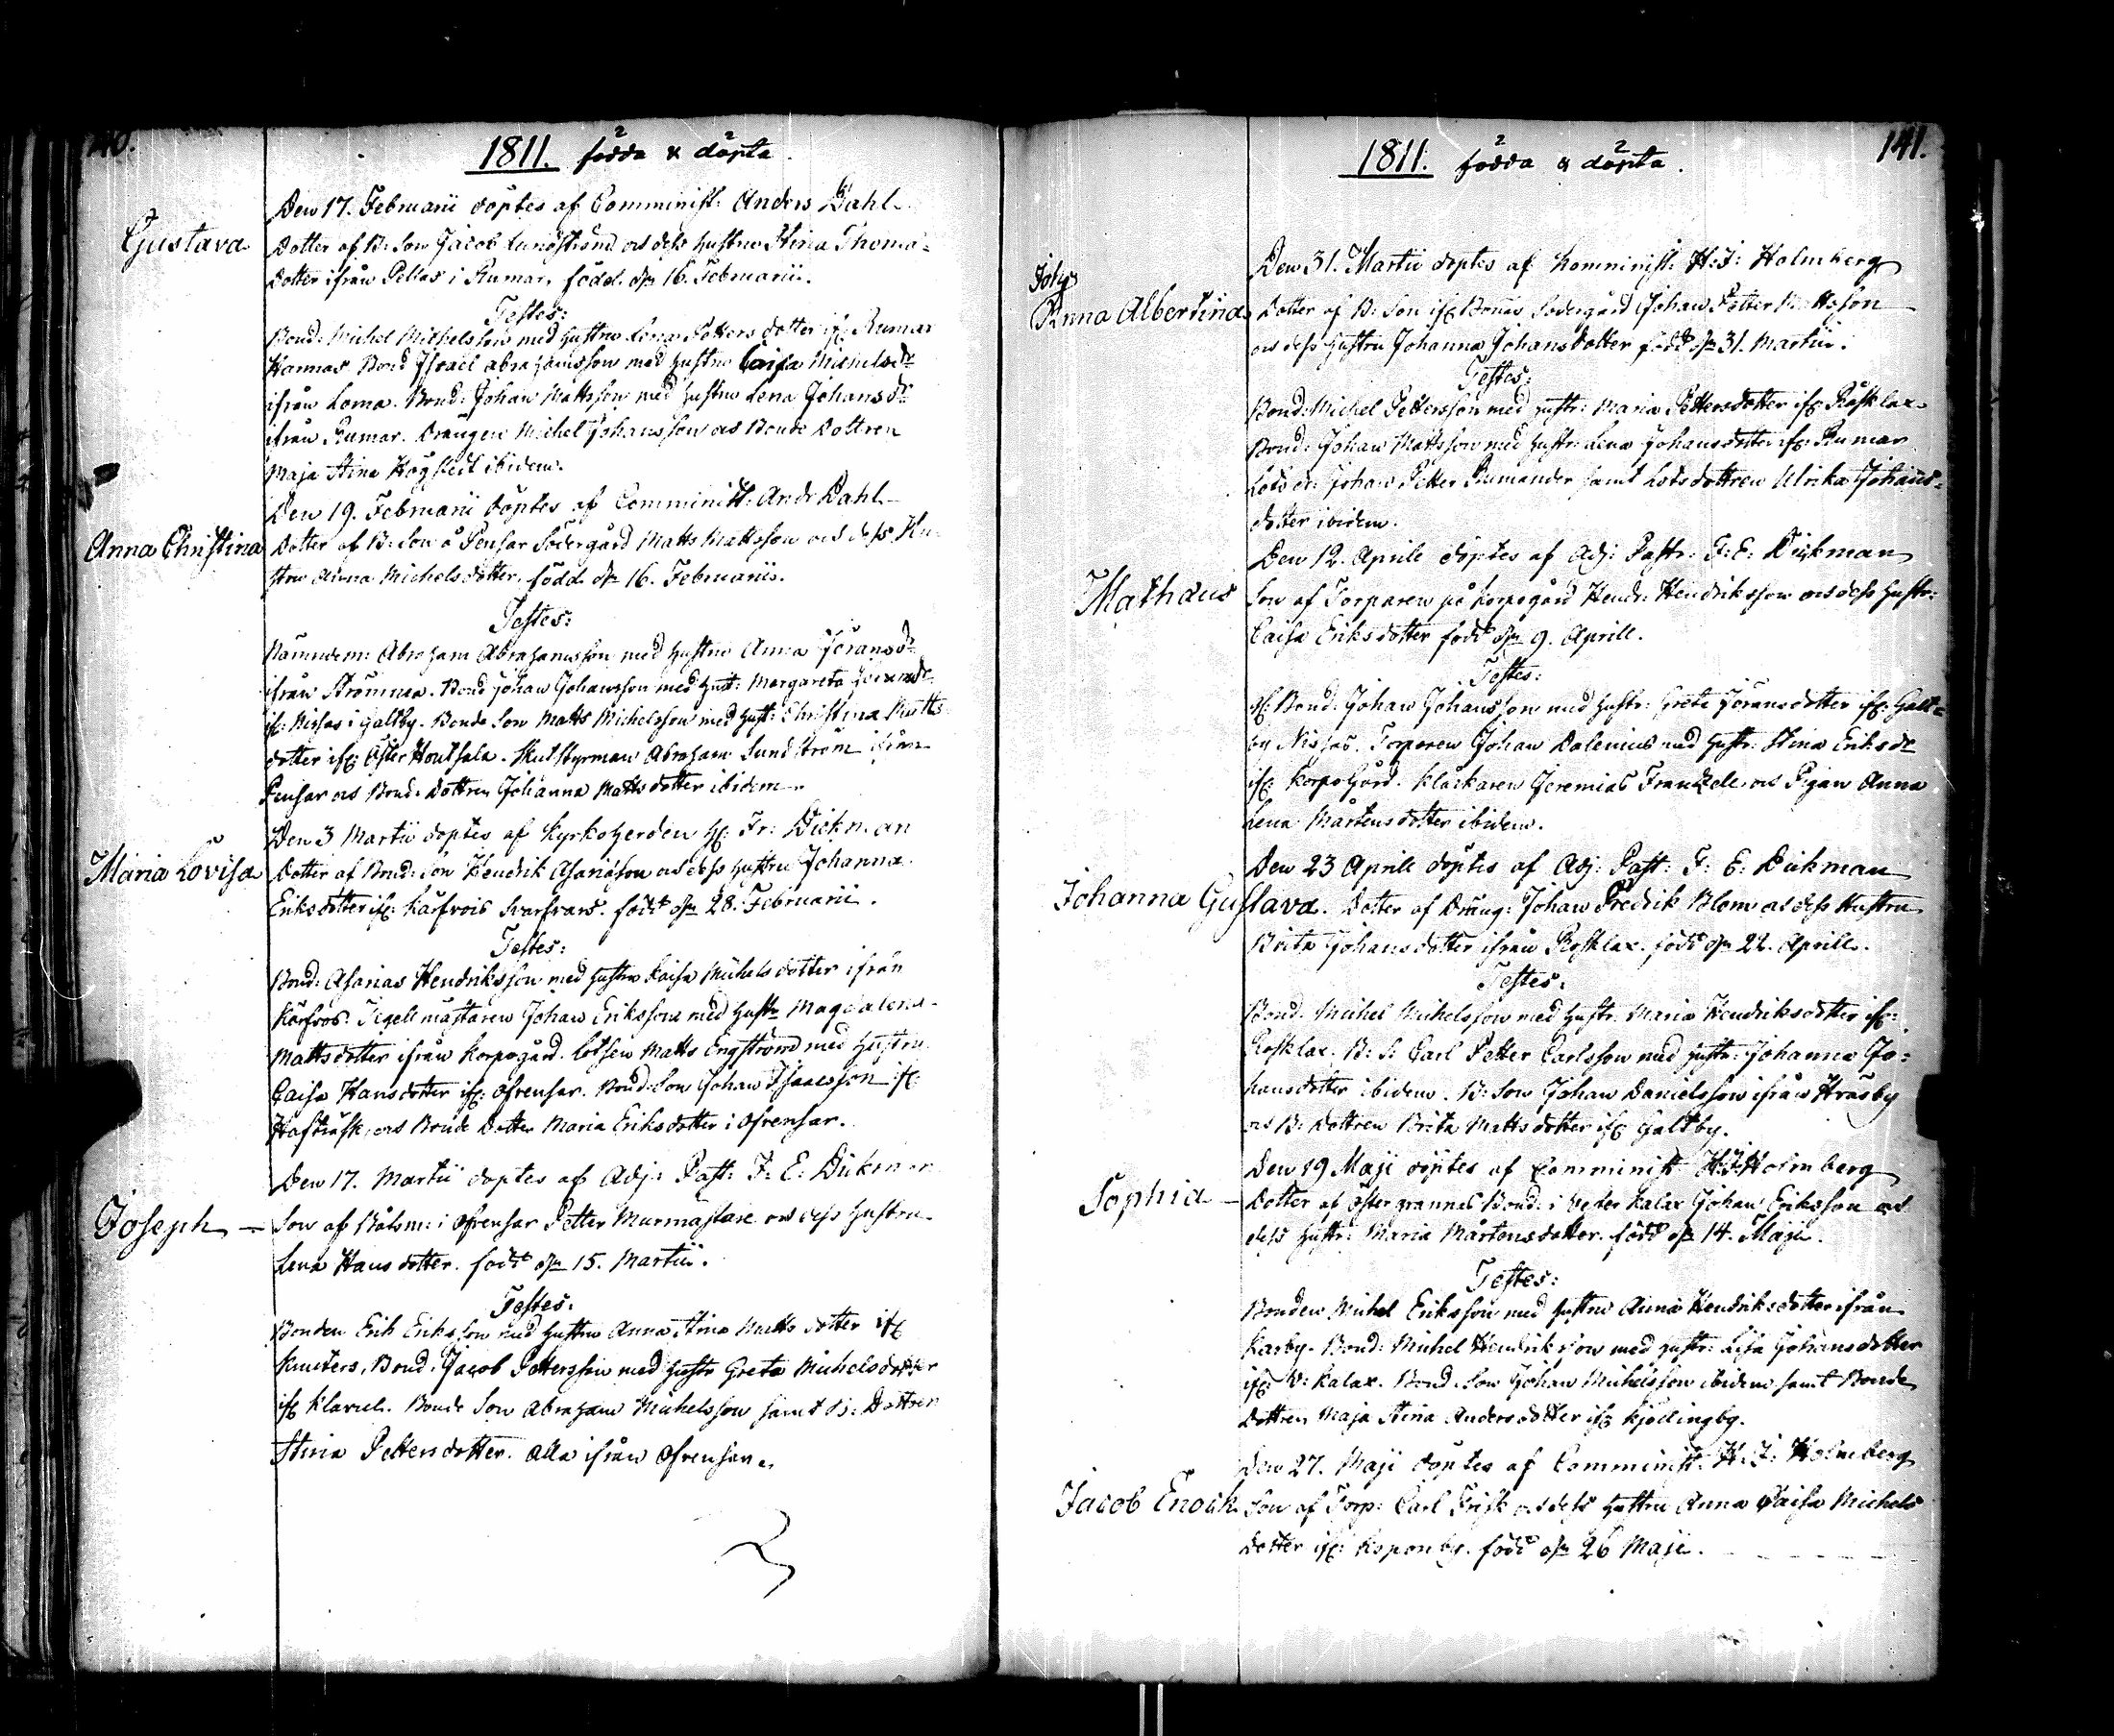 40.
1811. födda & döpta
Den 17. Februarii döptes af Comminist: Anders Dahl
Gustava
Dotter af B: Son Jacob Lundström och dess hustru Stina Thoma-
dotter ifrån Pellas i Rumar, född. dn 16. Februarii.
Testes:
Bond: Michel Michelsson med hustru Lena Petters dotter if: Rumar
Hannas Bond Israel abrahamsson med hustru Caisa Michelsdr
ifrån Loma. Bond: Johan Mattsson med hustru Lena Johansdr
ifrån Rumar. Drängen Michel Johansson och Bonde Dottren
Maja Stina Högstedt ibidem.
Den 19. Februarii döptes af Comminist: Andr Dahl
Anna Christina
Dotter af B: Son å Pensar Södergård Matts Mattsson och dess Hu-
stru Anna Michelsdotter, född dn 16. Februarii.
Testes:
Nämndem: Abraham Abrahamsson med hustru Anna Jöransdr
ifrån Strömma. Bond Johan Johansson med hust: Margareta Jöransdr
if: Nissas i Galtby. Bonde Son Matts Michelsson med hust: Christina Matts
dotter if: Öster Houtsala. Skutstyrman Abraham Sundström ifrån
Pensar och Bond: Dottren Johanna Mattsdotter ibidem.
Den 3 Martii döptes af Kyrkoherden H: Fr: Dickman
Maria Lovisa
Dotter af Bond: Son Hendrik Asariasson och dess hustru Johanna
Eriksdotter if: Kärfvois Svarfvars. född dn 28. Februarii.
Testes:
Bond: Asarias Hendriksson med hustru Kaisa Michelsdotter ifrån
Kärfvos. Tegelmästaren Johan Eriksson med hustr Magdalena
Mattsdotter ifrån Korpogård. Lotsen Matts Engström med hustru
Caisa Hansdotter if: Ofvensar. Bond: Son Johan Isaacsson if:
Hafträsk, och Bonde Dotter Maria Eriksdotter i Ofvensar.
Den 17. Martii döptes af Adj: Past: F: E: Dickman
Joseph
Son af Båtsm: i Ofvensar Petter Murmästare och dess hustru
Lena Hansdotter. född dn 15. Martii.
Testes:
Bonden Erik Eriksson med hustru Anna Stina Matts dotter if:
Knuters, Bond. Jacob Pettersson med hustr Greta Michelsdotter
if: Klavus. Bonde Son Abraham Michelsson samt B: Dottren
Stina Pettersdotter. alla ifrån Ofvensar.
141.
1811. födda & döpta.
Den 31. Martii döptes af Komminist. H: J: Holmberg
Anna Albertina
Dotter af B: Son if: Bonäs Södergård Johan Petter Mattsson
och dess hustru Johanna Johansdotter född dn 31. Martii.
Testes:
Bond: Michel Pettersson med hustr: Maria Pettersdotter if: Rösklax.
Bond: Johan Mattsson med hustr: Lena Johansdotter if: Rumar
Lots dr: Johan Petter Rumander samt Lots dottren Ulrika Johans-
dotter ibidem.
Den 12. Aprill döptes af Adj: Pastr: F: E: Dickman
Mathæus
Son af Torparen på Korpogård Hendr: Hendriksson och dess hustr:
Caisa Eriksdotter född dn 9. Aprill.
Testes:
Bond: Johan Johansson med hustr: Greta Jöransdotter if: Galt-
by Nissas. Torparen Johan Dalenius med hustr. Stina Eriksdr
if: Korpogård. Klåckaren Jeremias Franzell och Pigan Anna
Lena Mårtensdotter ibidem.
Den 23 Aprill döptes af Adj: Past: F: E: Dickman
Johanna Gustava.
Dotter af Dräng: Johan Fredrik Blom och dess Hustru
Brita Johansdotter ifrån Rosklax. född dn 22. Aprill.
Testes:
Bond. Michel Michelsson med hustr: Maria Hendriksdotter if:
Rosklax. B: S: Carl Petter Carlsson med hustr: Johanna Jo-
hansdotter ibidem. B: Son Johan Danielsson ifrån Kråsby
och B: Dottren Brita Mattsdotter if: Galtby.
Den 19 Maji döptes af Comminist H: J: Holmberg
Sophia
Dotter af Östergrannas Bond: i Vester Kalax Johan Eriksson och
dess hustr: Maria Mårtensdotter. född dn 14. Maji.
Testes:
Bonden Michel Eriksson med hustru Anna Hendriksdotter ifrån
Karby. Bond: Michel Hendriksson med hustr: Lisa Johansdotter
if: V: Kalax. Bond. Son Johan Michelsson ibidem samt Bonde
Dottren Maja Stina Andersdotter if: Kjedingby.
Den 27. Maji döptes af Comminist: H: J: Holmberg
Jacob Enock
Son af Torp: Carl Frisk och dess hustru Anna Caisa Michels
dotter if: Koponby. född dn 26 Maji.